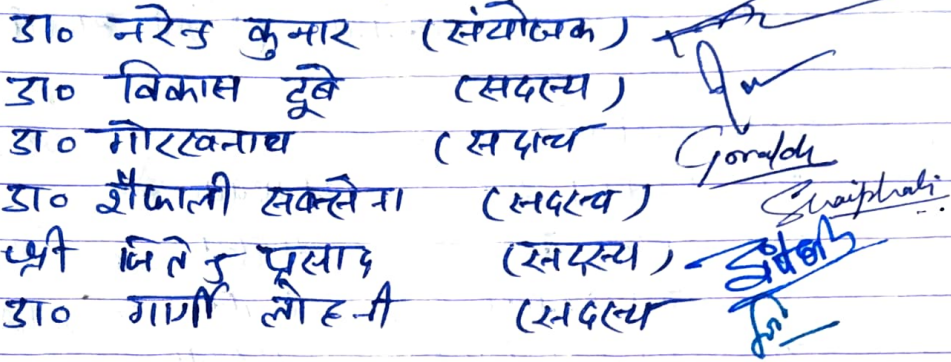 डा० नरेन्द्र कुमार (संयोजक)
डा० विकास दूबे (सदस्य)
डा० गोरखनाथ (सदस्य
डा० शैफाली सक्सेना (सदस्य) Shaiphali
श्री जितेन्द्र प्रसाद (सदस्य)
डा० गार्गी लोहनी (सदस्य